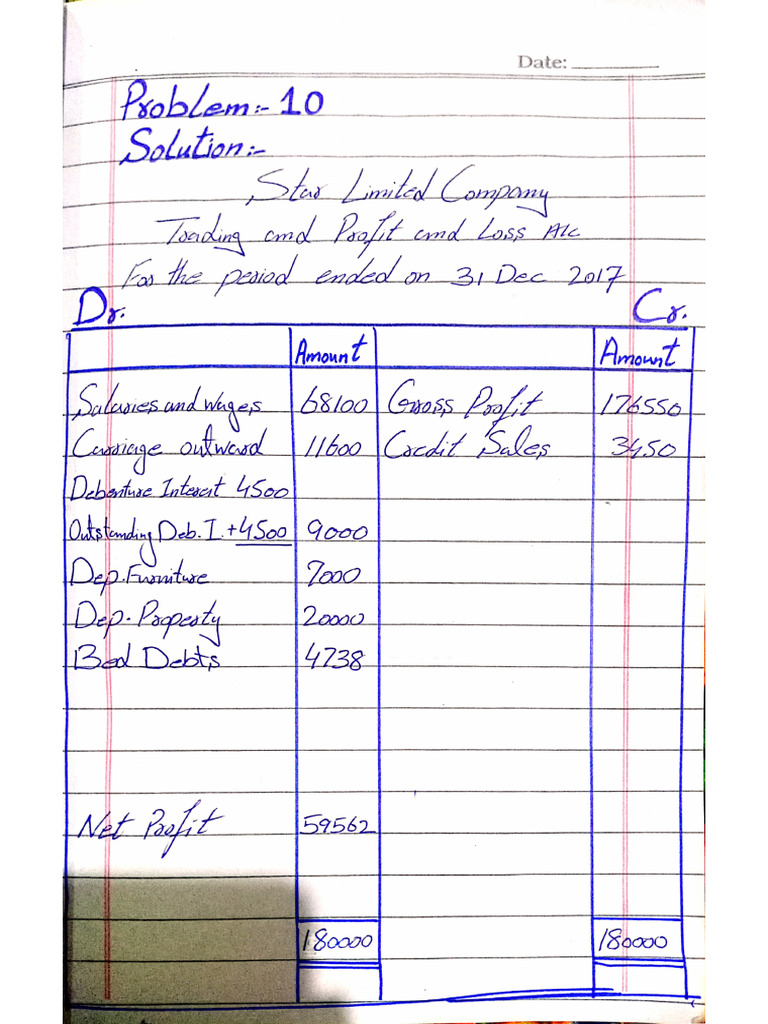 Date:
Problem:- 10
Solution:-
Star Limited Company
Trading and Profit and Loss A/c
For the period ended on 31 Dec 2017
Dr. Cr.
Amount Amount
Salaries and Wages 68100 Gross Profit 176550
Carriage outward 11600 Credit Sales 3450
Debenture Interest 4500
Outstanding Deb. I. +4500 9000
Dep. Furniture 7000
Dep. Property 20000
Bad Debts 4738
Net Profit 59562
180000 180000